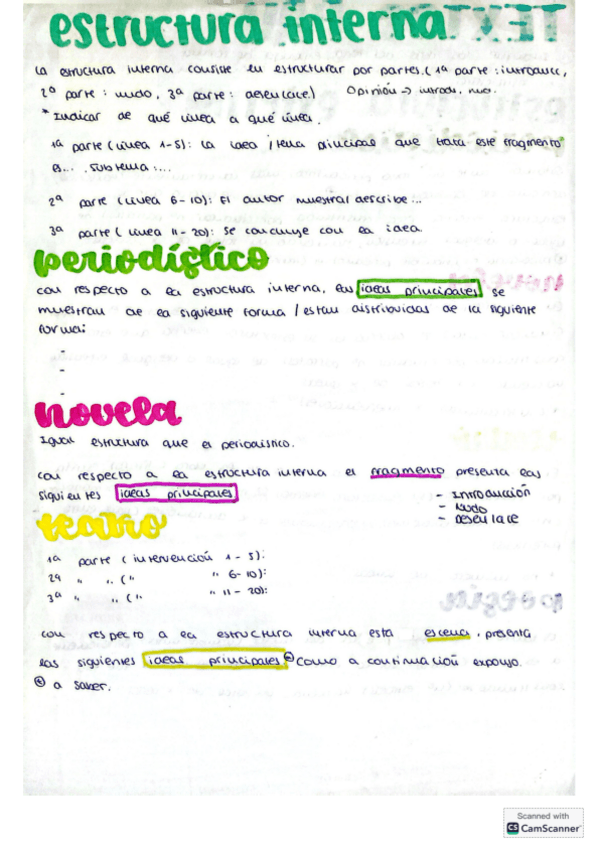 estructura interna
La estructura interna consiste en estructurar por partes. (1ª parte: introducc,
2ª parte: nudo, 3ª parte: desenlace) Opinión → introd, nu.
* Indicar de qué línea a qué línea.
1ª parte (línea 1-5): La idea / tema principal que trata este fragmento
es... . Subtema:...
2ª parte (línea 6-10): El autor muestra/describe...
3ª parte (línea 11-20): Se concluye con la idea.
periodístico
con respecto a la estructura interna, las ideas principales se
muestran de la siguiente forma / están distribuidas de la siguiente
forma:
-
-
-
novela
Igual estructura que el periodístico.
con respecto a la estructura interna el fragmento presenta las
siguientes ideas principales
- Introducción
- Nudo
- Desenlace
teatro
1ª parte (intervención 1-5):
2ª " " (" " 6-10):
3ª " " (" " 11-20):
con respecto a la estructura interna esta escena, presenta
las siguientes ideas principales como a continuación expongo.
a saber.
Scanned with
CS CamScanner